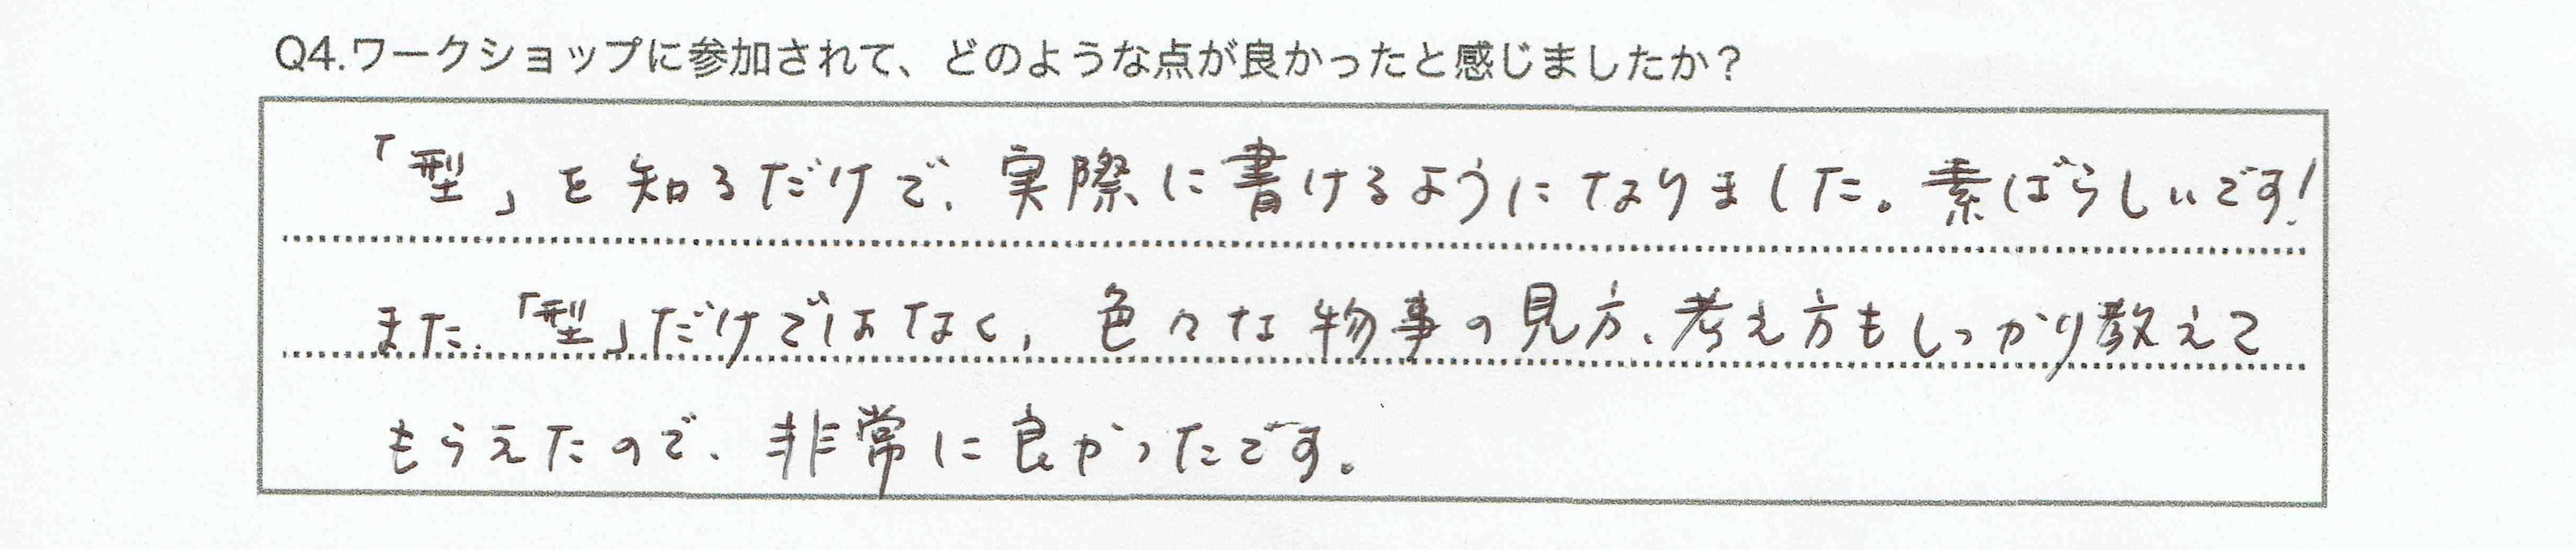 Q4.ワークショップに参加されて、どのような点が良かったと感じましたか？
「型」を知るだけで、実際に書けるようになりました。素ばらしいです!
また、「型」だけではなく、色々な物事の見方、考え方もしっかり教えて
もらえたので、非常に良かったです。